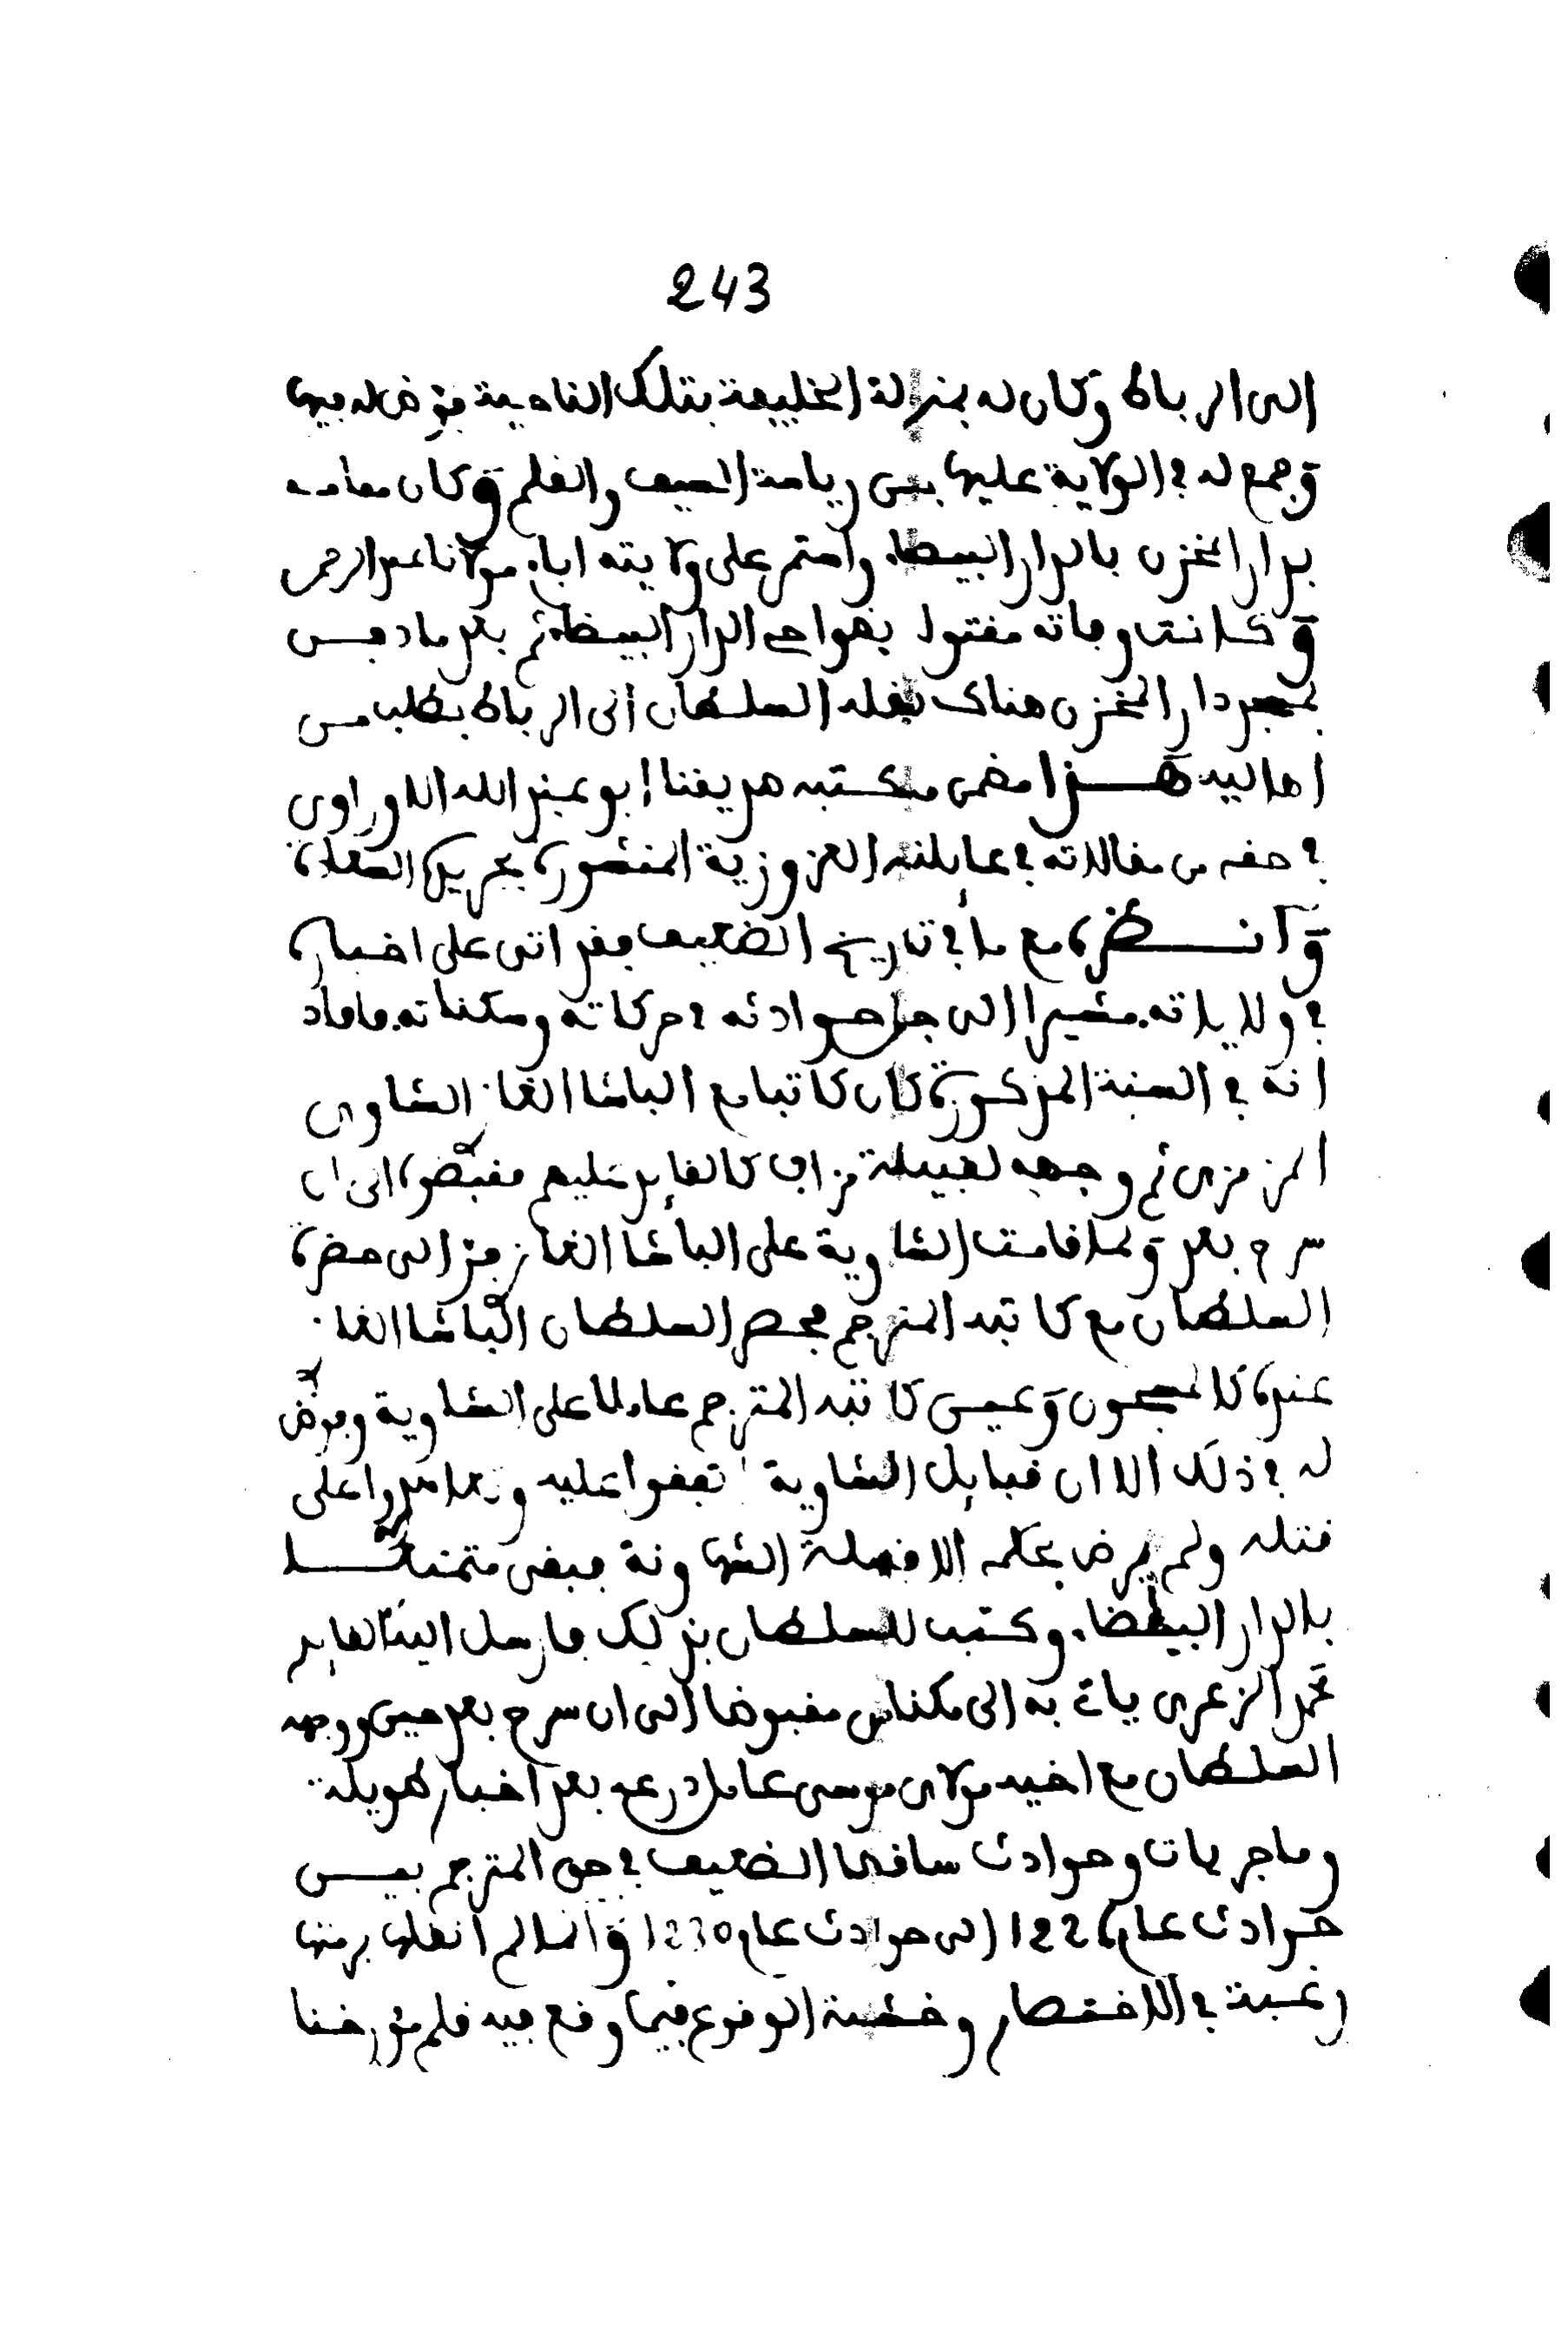 243
الى الرباط وكان له بمنزلة الخليفة بتلك الناحية مفوض له فيها
وجمع له في الولاية عليها بين رياسة السيف والقلم وكان مقامه
بدار المخزن بالدار البيضاء واستمر على ولايته اياه مولانا عبد الرحمن
وكانت وفاته مقتولا بضواحي الدار البيضاء ثم بعد ما دفن
بمسجد دار المخزن هناك نقله السلطان الى الرباط بطلب من
اهاليه هذا مضمن ما كتبه صديقنا ابو عبد الله الاوراوي
في حقه من مقالاته في عايلته العزوزية المنشورة بجريدة السعادة
وانظره مع ما في تاريخ الضعيف فقد اتى على اخباره
في ولاياته مشيرا الى جل حوادثه في حركاته وسكناته فافاد
انه في السنة المذكورة كان كاتبا مع الباشا الغاز الشاوي
المزمزي ثم وجهه لقبيلة مزاب كالقايد عليهم فقبضوه الى ان
سرح بعد ولما قامت الشاوية على الباشا الغاز فر الى حضرة
السلطان مع كاتبه المترجم فحصر السلطان الباشا الغاز
عنده كالمسجون وعين كاتبه المترجم عاملا على الشاوية وفوض
له في ذلك الا ان قبايل الشاوية اتفقوا عليه وتعاهدوا على
قتله ولم يرض بحكمه الا قبيلة الشهاونة فبقى متمنعا
بالدار البيضاء وكتب للسلطان بذلك فارسل اليه القايد
محمد الزعري ياتي به الى مكناس مقبوضا الى ان سرح بعد حين ووجهه
السلطان مع اخيه مولاي موسى عامل درعة بعد اخبار طويلة
وماجريات وحوادث ساقها الضعيف في حق المترجم بين
حوادث عام 1225 الى حوادث عام 1230 وانما لم انقلها برمتها
رغبة في الاختصار وخشية الوقوع فيما وقع فيه قلم مؤرخنا